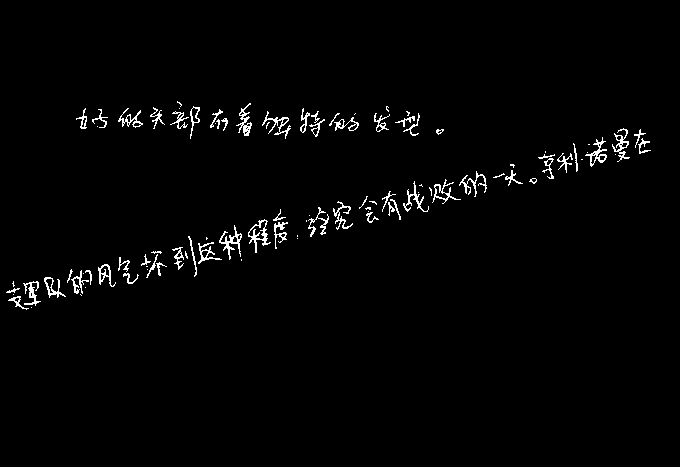 好的头部有着独特的发型。
这里队的风气坏到这种程度,终究会有战败的一天。亨利·诺曼在